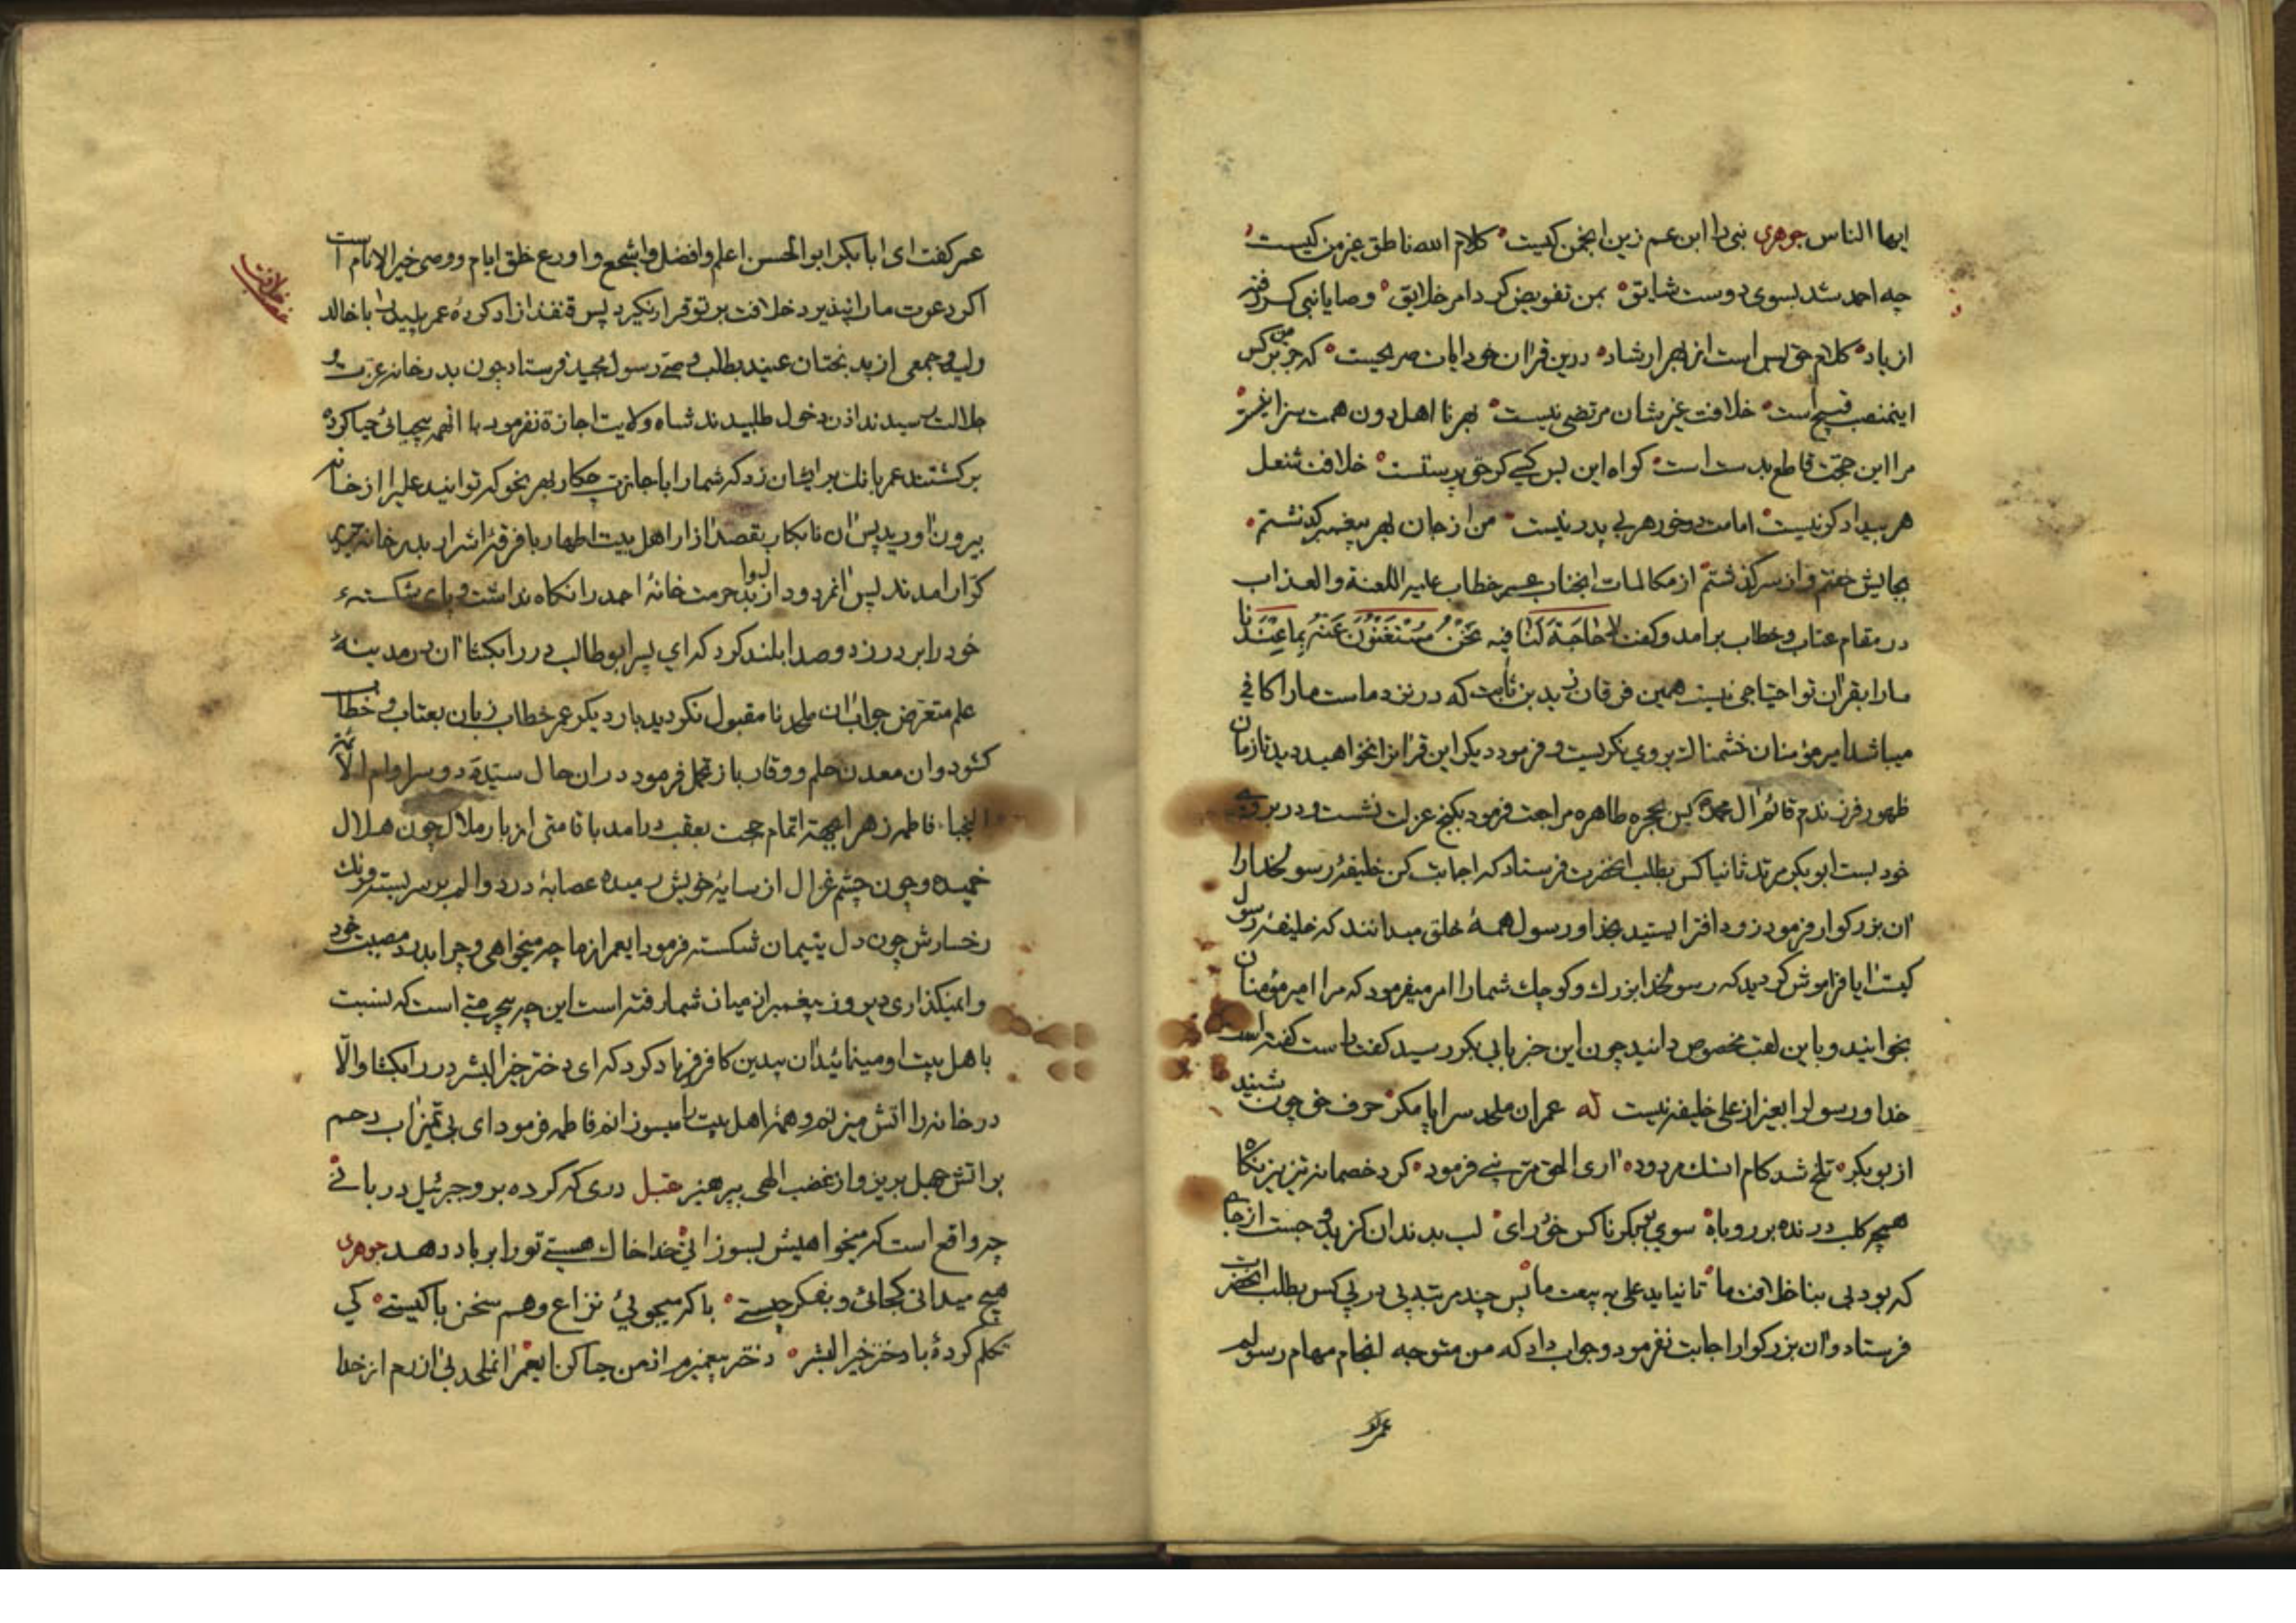 ایها الناس جوهری نبی را ابن عم زین انجمن کیست کلام الله ناطق غیر من کیست
چه احمد شد بسوی دوست شایق بمن تفویض کرد امر خلایق وصایا نبی کر رفته
از یاد کلام حق بس است از بهر ارشاد درین قران خود ایات صریحیست که جز من هر کس
اینمنصب قبیح است خلافت غیر شان مرتضی نیست بهر نا اهل دون همت سزا نیست
مرا این حجت قاطع بدست است کواه این بس کسی کو حق پرستست خلافت شغل
هر بیداد کر نیست امامت در خور هر بی پدر نیست من از جان بهر پیغمبر کذشتم
بجایش خفتم و از سر کذشتم از مکالمات انجناب عمر خطاب علیه اللعنة والعذاب
در مقام عتاب و خطاب برامد و کفت لا حاجة لنا فیه نحن مستغنون عنه بما عندنا
ما را بقران تو احتیاجی نیست همین فرقان زید بن ثابت که در نزد ماست ما را کافی
میباشد امیر مؤمنان خشمناک بروی نکریست و فرمود دیکر این قرانرا نخواهید دید تا زمان
ظهور فرزندم قائم ال محمد پس بحجره طاهره مراجعت فرمود بکنج عزلت نشست و در بروی
خود بست ابو بکر مرتد ثانیا کس بطلب انحضرت فرستاد که اجابت کن خلیفه رسولخدا را
ان بزرکوار فرمود زود افترا بستید بخدا و رسول همهٔ خلق میدانند که خلیفهٔ رسول
کیست ایا فراموش کردید که رسولخدا بزرک و کوچک شما را امر میفرمود که مرا امیر مؤمنان
بخوانید و باین لقب مخصوص دانید چون این خبر بابی بکر رسید کفت راست کفته است
خدا و رسول را بغیر از علی خلیفه نیست له عمران ملحد سراپا مکر حرف حق چون شنید
از بو بکر تلخ شد کام ان سک مردود اری الحق مر نبی فرمود کرد خصمانه تیز تیز نکاه
همچو کلب درنده بر روباه سوی بو بکر ناکس خود رای لب بدندان کزید و جست از جای
که بود بی بنا خلافت ما تا نیاید علی به بیعت ما پس چند مرتبه پی در پی کس بطلب انحضرت
فرستاد و ان بزرکوار اجابت نفرمود و جواب داد که من متوجه انجام مهام رسولم
عمر کفت
عمر کفت ای ابا بکر ابو الحسن اعلم و افضل و اشجع و اورع خلق ایام و وصی خیر الانام است
اکر دعوت ما را نپذیرد خلافت بر تو قرار نکیرد پس قنفذ ازاد کردهٔ عمر پلید را با خالد
ولید و جمعی از بد بختان عنید بطلب وصی رسول مجید فرستاد چون بدر خانه عزت و
جلالت رسیدند اذن دخول طلبیدند شاه ولایت اجازة نفرمود با انهمه بیحیائی حیا کرده
برکشتند عمر بانک بر ایشان زد که شما را باجازت چکار بهر نحو که توانید علی را از خانه
بیرون اورید پس ان نابکار بقصد ازار اهل بیت اطهار با فرقهٔ اشرار بدر خانه حیدر
کرّار امدند پس انمردود از لوا بد حرمت خانهٔ احمد را نکاه نداشت و پای شکسته
خود را بر در زد و صدا بلند کرد که ای پسر ابو طالب در را بکشا ان در مدینه
علم متعرض جواب ان ملحد نا مقبول نکردید بار دیکر عمر خطاب زبان بعتاب و خطاب
کشود و ان معدن حلم و وقار باز تحمل فرمود در ان حال سیّدهٔ دو سرا و ام الائمة
النجبا فاطمه زهرا بجهة اتمام حجت بعقب در امد با قامتی از بار ملال چون هلال
خمیده و چون چشم غزال از سایهٔ خویش رمیده عصابهٔ درد و الم بر سر بسته و رنک
رخسارش چون دل یتیمان شکسته فرمود ایعمر از ما چه میخواهی و چرا بدرد مصیبت خود
وا نمیکذاری دیروز پیغمبر از میان شما رفته است این چه بیحرمتی است که نسبت
باهل بیت او مینمائید ان بیدین کافر فریاد کرد که ای دختر خیر البشر در را بکشا والّا
در خانه را اتش میزنم و همه اهل بیت را میسوزانم فاطمه فرمود ای بی تمیز اب رحم
بر اتش جهل بریز و از غضب الهی بپرهیز مقبل دری که کرده برو جبرئیل دربانی
چه واقع است که میخواهیش بسوزانی خدا خاک هستی تو را بر باد دهد جوهری
هیچ میدانی کجائی و بفکر چیستی با که میجویی نزاع و هم سخن با کیستی کی
تکلم کردهٔ با دختر خیر البشر دختر پیغمبرم از من حیا کن ایعمر از خدا